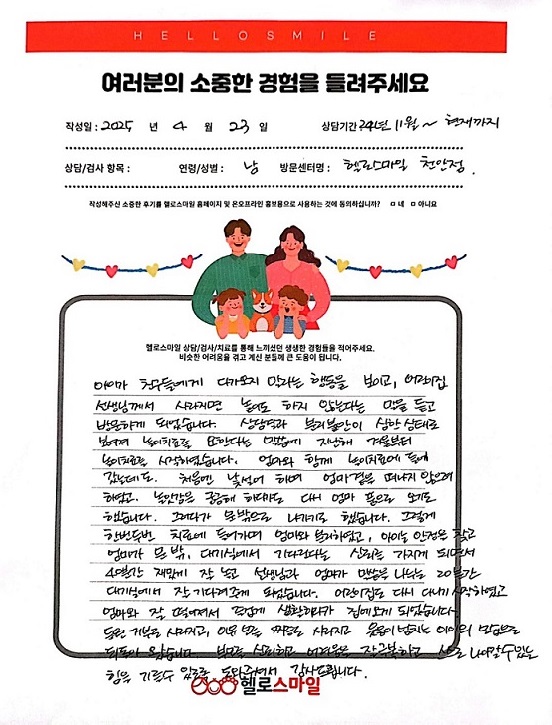 HELLOSMILE
여러분의 소중한 경험을 들려주세요
작성일 : 2025 년 4 월 23 일 상담기간 24년 11월 ~ 현재까지
상담/검사 항목 : 연령/성별 : 남 방문센터명 : 헬로스마일 천안점.
작성해주신 소중한 후기를 헬로스마일 홈페이지 및 온오프라인 홍보용으로 사용하는 것에 동의하십니까? □ 네 □ 아니요
헬로스마일 상담/검사/치료를 통해 느끼셨던 생생한 경험들을 적어주세요.
비슷한 어려움을 겪고 계신 분들께 큰 도움이 됩니다.
아이가 친구들에게 다가오지 말라는 행동을 보이고, 어린이집
선생님께서 사라지면 놀이도 하지 않는다는 말을 듣고
방문하게 되었습니다. 상담결과 분리불안이 심한 상태로
놀이치료를 요한다는 말씀에 지난해 겨울부터
놀이치료를 시작하였습니다. 엄마와 함께 놀이치료에 들어
갔는데도. 처음엔 낯설어 하며 엄마곁을 떠나지 않으려
하였고, 놀잇감을 궁금해 하다가도 다시 엄마 품으로 오기도
했습니다. 그러다가 문밖으로 나가기도 했습니다. 그렇게
한번두번 치료에 들어가며 엄마와 분리하였고, 아이는 안정을 찾고
엄마가 문 밖, 대기실에서 기다린다는 신뢰를 가지게 되면서
40분간 재밌게 잘 놀고 선생님과 엄마가 말씀을 나누는 20분간
대기실에서 잘 기다려주게 되었습니다. 어린이집도 다시 다니기 시작하였고
엄마와 잘 떨어져서 즐겁게 생활하다가 집에오게 되었습니다.
사라지고, 이유 없는 짜증도 사라지고 웃음이 넘치는 아이의 모습으로
신뢰하고 어려움을 잘 극복하고 스스로 나아갈수있는
힘을 기를수 있도록 도와주셔서 감사드립니다.
헬로스마일